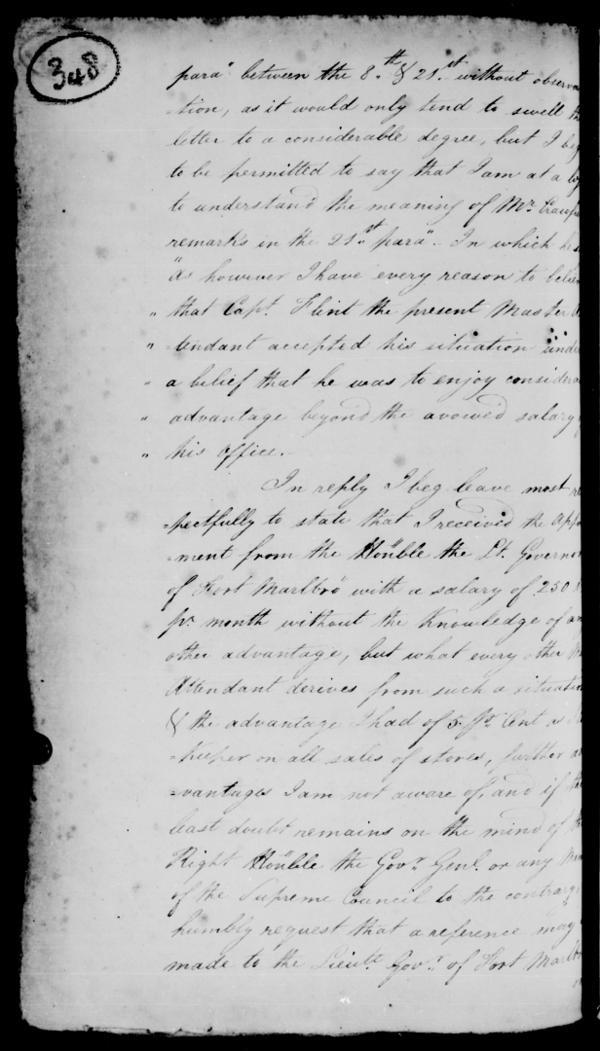 348
para between the 8.th & 21.st without observa
-tion, as it would only tend to swell th
letter to a considerable degree, but I beg
to be permitted to say that I am at a lo
to understand the meaning of Mr. Crawfu
remarks in the 21.st para". In which he s
"As however I have every reason to belie
" that Capt. Flint the present Master A
" tendant accepted his situation unde
" a belief that he was to enjoy considera
" advantage beyond the avowed salary
" his office.
In reply I beg leave most re
=pectfully to state that I received the appo
=ment from the Honble the Lt. Governor
of Fort Marlbro with a salary of 250
pr. month without the Knowledge of an
other advantage, but what every other
Attendant derives from such a situation
& the advantage I had of 5 pr. Cent
=Keeper on all sales of stores, further a
=vantages I am not aware of, and if th
least doubt remains on the mind of th
Right Honble the Govr. Genl. or any
of the Supreme Council to the contrary
humbly request that a reference may
made to the Lieutt. Govr. of Fort Marlbr